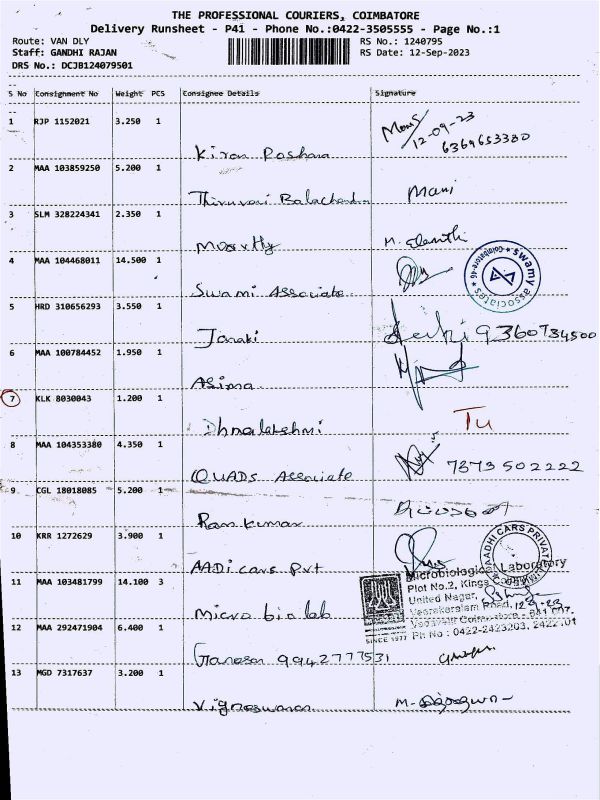 THE PROFESSIONAL COURIERS, COIMBATORE
Delivery Runsheet - P41 - Phone No.:0422-3505555 - Page No.:1
Route: VAN DLY RS No.: 1240795
Staff: GANDHI RAJAN RS Date: 12-Sep-2023
DRS No.: DCJB124079501
S No Consignment No Weight PCS Consignee Details Signature
1 RJP 1152021 3.250 1
12-09-23
6369653380
Kiran Poshana
2 MAA 103859250 5.200 1
Thiruvani Balachandra Mani
3 SLM 328224341 2.350 1
Moorthy M. Elanthi
4 MAA 104468011 14.500 1
swamy associates * Coimbatore-46 *
Swami Associate
5 HRD 310656293 3.550 1
Janaki 9360734500
6 MAA 100784452 1.950 1
Asima
7 KLK 8030043 1.200 1
Dhnalakshmi
8 MAA 104353380 4.350 1
QUADs Associate 7373502222
9 CGL 18018085 5.200 1
Ram kumar
10 KRR 1272629 3.900 1
AADHI CARS PRIVATE
AADi cars Pvt
11 MAA 103481799 14.100 3
Microbiological Laboratory
Plot No.2, Kings
United Nagar,
Veerakeralam Road,
SINCE 1977 Ph No : 0422-2423203,
Micro bio lab
12 MAA 292471904 6.400 1
Ganesan 9942777531
13 MGD 7317637 3.200 1
Vignaswaran